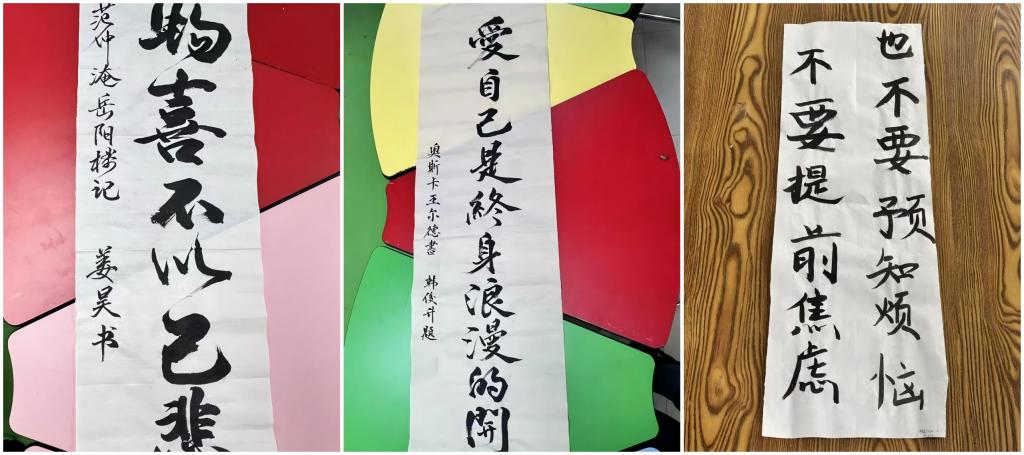 物喜不以己悲
范仲淹岳阳楼记 姜昊书
愛自己是終身浪漫的開
奥斯卡王尔德書 韩俊升题
也不要预知烦恼
不要提前焦虑